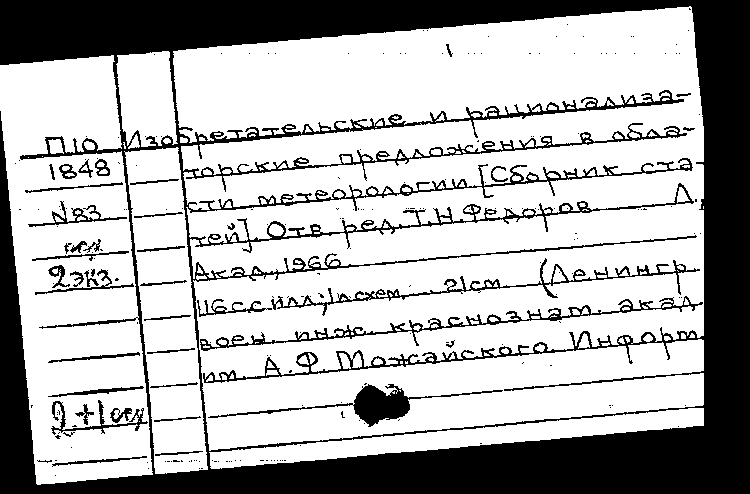 П10 Изобретательские и рационализа-
1848 торские предложения в обла-
сти метеорологии [Сборник ста-
N83 тей]. Отв. ред. Т.Н.Федоров Л.,
2экз. Акад., 1966
116с.с илл; 1л схем. 21см (Ленингр
воен. инж. краснознам. акад
им. А.Ф. Можайского. Информ.
2+1